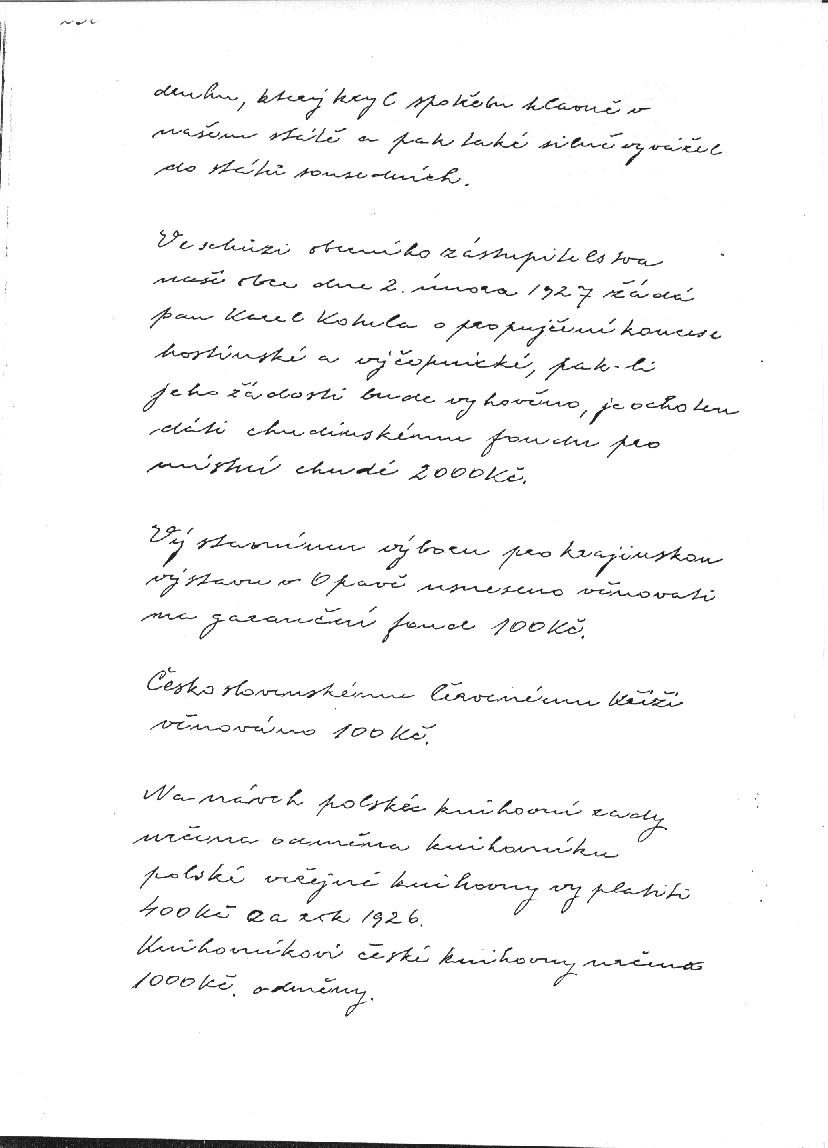 druhu, který kryl spotřebu hlavně v
našem státě a pak také silně vyvážel
do států sousedních.
Ve schůzi obecního zástupitelstva
naší obce dne 2. února 1927 žádá
pan Karel Kohula o propujčení koncese
hostinské a výčepnické, pak-li
jeho žádosti bude vyhověno, je ochoten
dáti chudinskému fondu pro
místní chudé 2000Kč.
Výstavnímu výboru pro krajinskou
výstavu v Opavě usneseno věnovati
na garanční fond 100Kč.
Československému Červenému Kříži
věnováno 100Kč.
Na návrh polské knihovní rady
určena odměna knihovníku
polské veřejné knihovny vyplatiti
400Kč za rok 1926.
Knihovníkovi české knihovny určena
1000Kč. odměny.